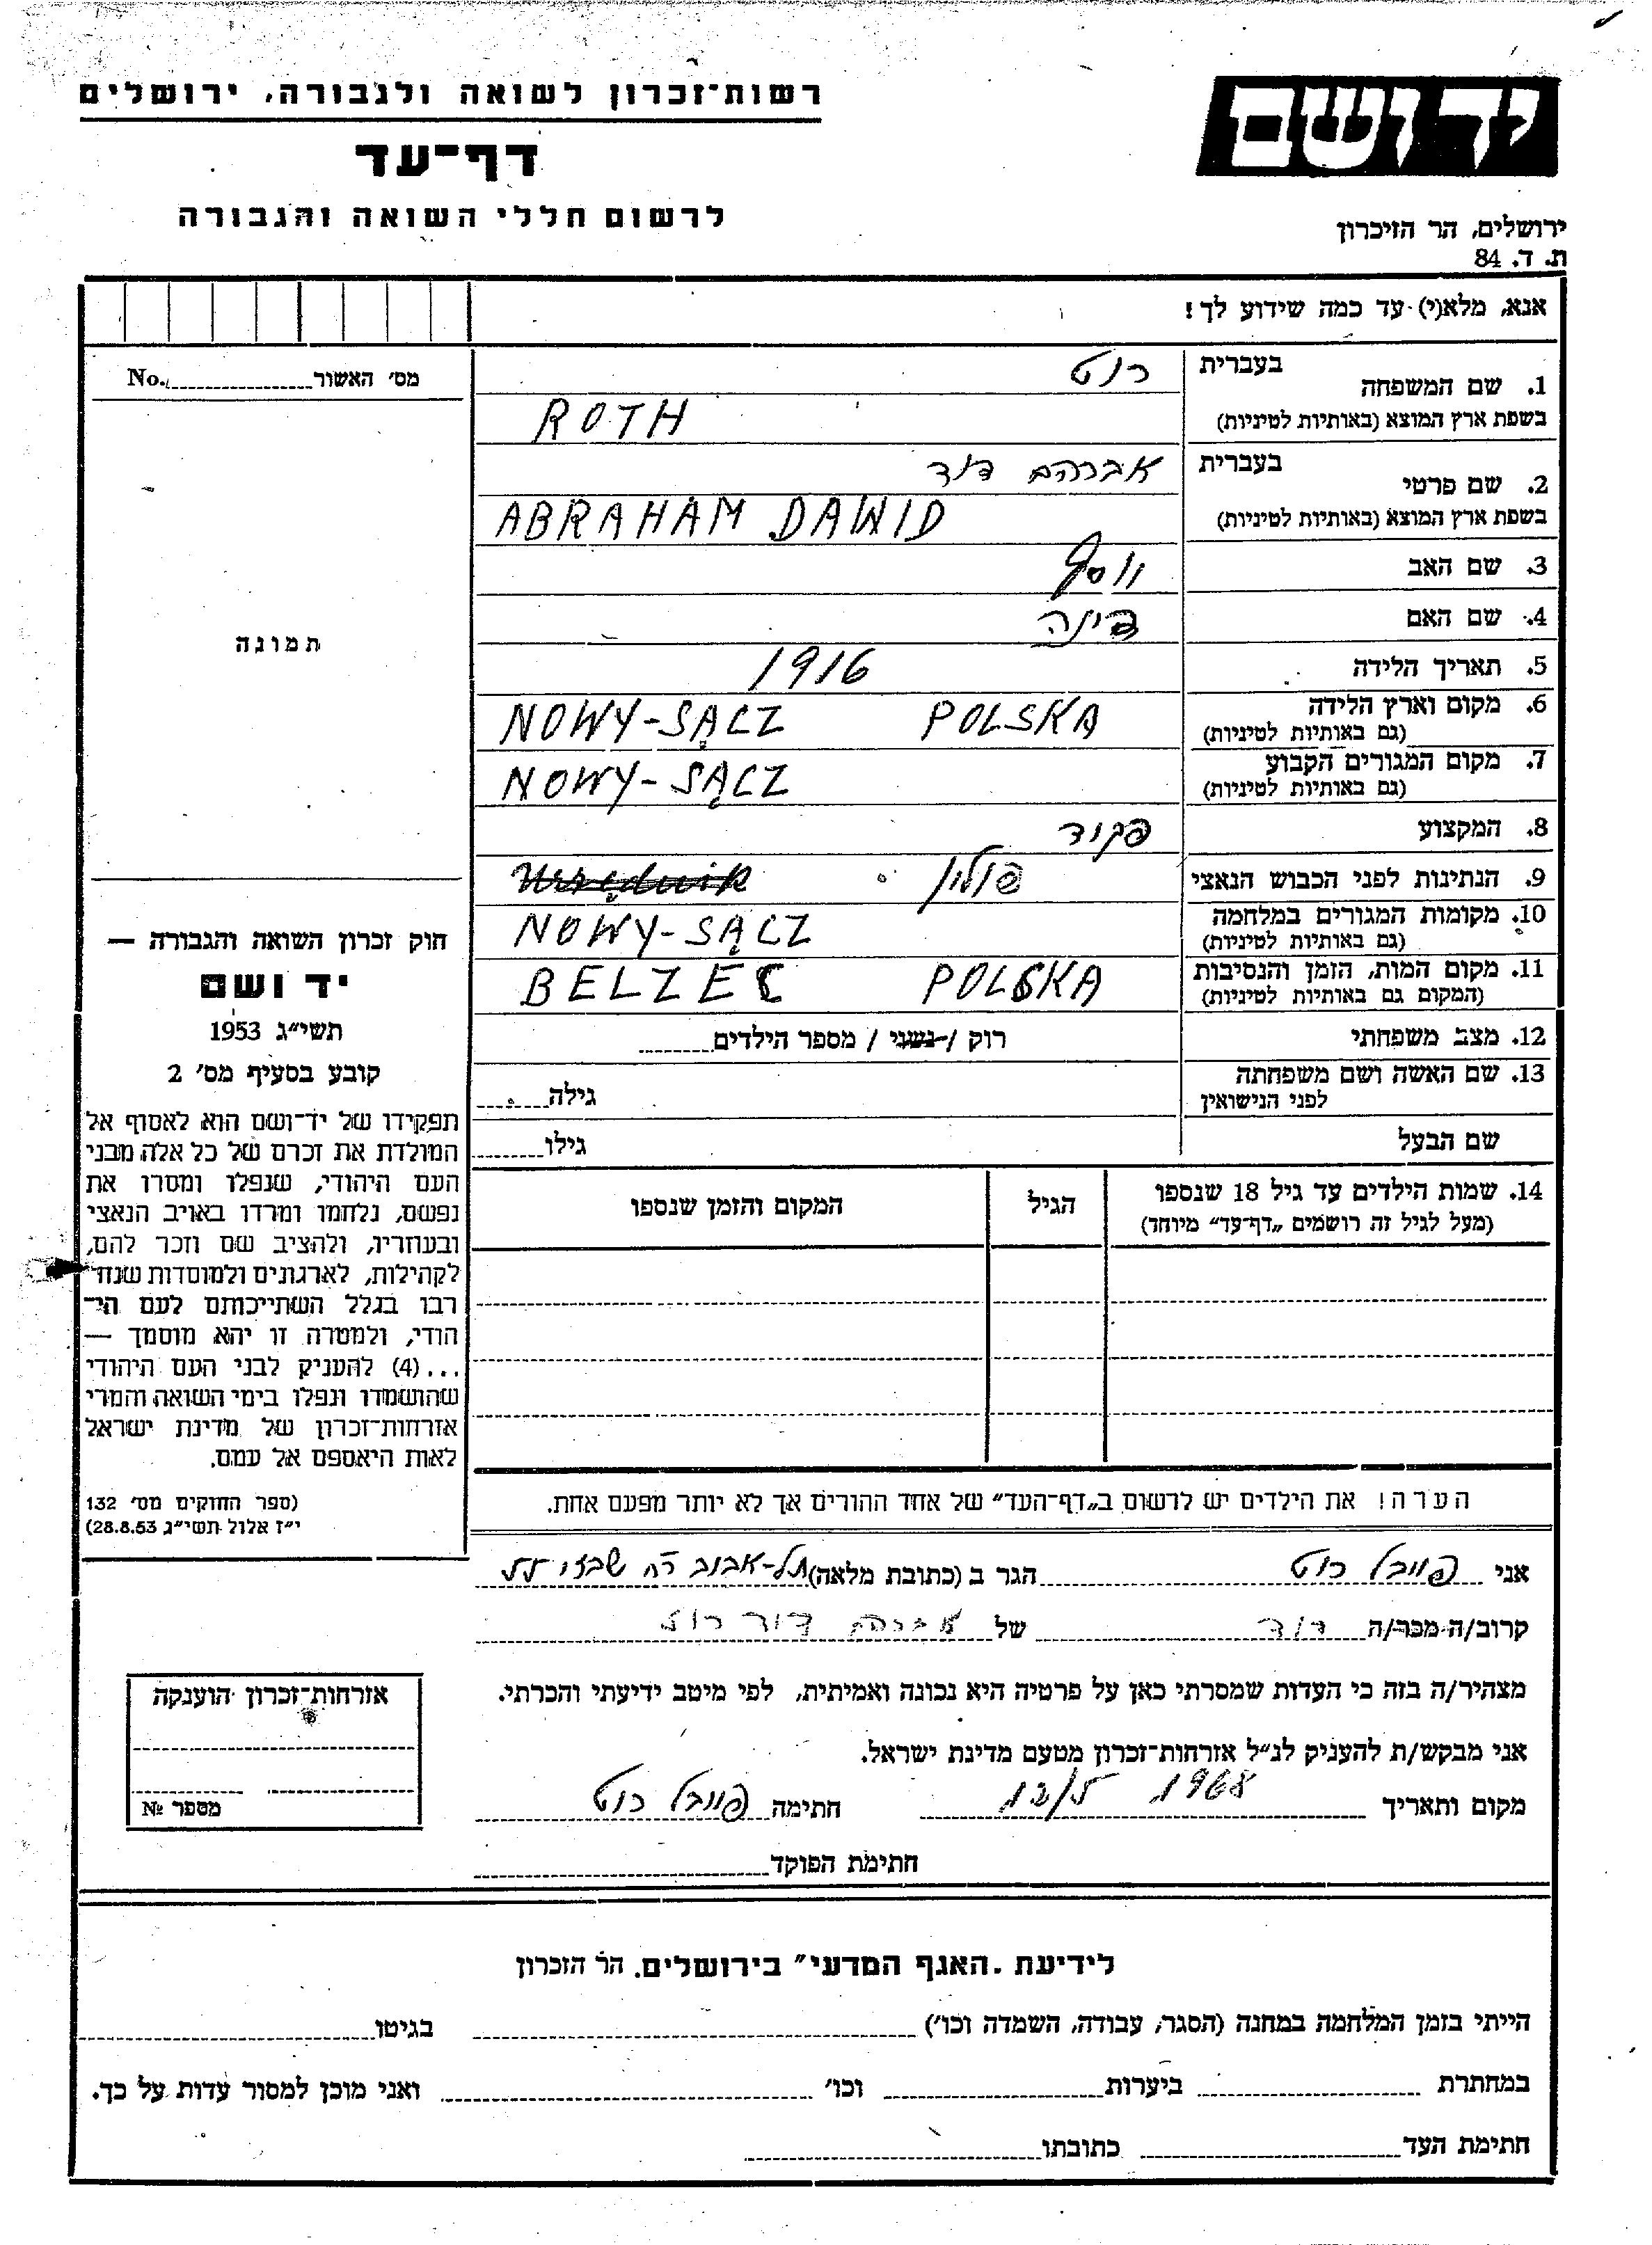 רשות־זכרון לשואה ולגבורה, ירושלים
דף־עד
לרשום חללי השואה והגבורה
יד ושם
ירושלים, הר הזיכרון
ת. ד. 84
אנא, מלא(י) עד כמה שידוע לך!
1. שם המשפחה
בעברית
רוט
בשפת ארץ המוצא (באותיות לטיניות)
ROTH
2. שם פרטי
בעברית
אברהם דוד
בשפת ארץ המוצא (באותיות לטיניות)
ABRAHAM DAWID
3. שם האב
יוסף
4. שם האם
דינה
5. תאריך הלידה
1916
6. מקום וארץ הלידה
(גם באותיות לטיניות)
NOWY-SĄCZ POLSKA
7. מקום המגורים הקבוע
(גם באותיות לטיניות)
NOWY-SĄCZ
8. המקצוע
פקיד
9. הנתינות לפני הכבוש הנאצי
פולין Urzędnik
10. מקומות המגורים במלחמה
(גם באותיות לטיניות)
NOWY-SĄCZ
11. מקום המות, הזמן והנסיבות
(המקום גם באותיות לטיניות)
BELZEC POLSKA
12. מצב משפחתי
רוק / נשוי / מספר הילדים
13. שם האשה ושם משפחתה
לפני הנישואין
גילה
שם הבעל
גילו
14. שמות הילדים עד גיל 18 שנספו
(מעל לגיל זה רושמים „דף־עד״ מיוחד)
הגיל
המקום והזמן שנספו
הערה! את הילדים יש לרשום ב„דף־העד״ של אחד ההורים אך לא יותר מפעם אחת.
מס׳ האשור No.
תמונה
חוק זכרון השואה והגבורה —
יד ושם
תשי״ג 1953
קובע בסעיף מס׳ 2
תפקידו של יד־ושם הוא לאסוף אל
המולדת את זכרם של כל אלה מבני
העם היהודי, שנפלו ומסרו את
נפשם, נלחמו ומרדו באויב הנאצי
ובעוזריו, ולהציב שם וזכר להם,
לקהילות, לארגונים ולמוסדות שנח־
רבו בגלל השתייכותם לעם הי־
הודי, ולמטרה זו יהא מוסמך —
...(4) להעניק לבני העם היהודי
שהושמדו ונפלו בימי השואה והמרי
אזרחות־זכרון של מדינת ישראל
לאות היאספם אל עמם.
(ספר החוקים מס׳ 132
י״ז אלול תשי״ג 28.8.53)
אני פייבל רוט הגר ב (כתובת מלאה) תל-אביב רח שבזי
קרוב/ה מכר/ה דוד של אברהם דוד רוט
מצהיר/ה בזה כי העדות שמסרתי כאן על פרטיה היא נכונה ואמיתית, לפי מיטב ידיעתי והכרתי.
אני מבקש/ת להעניק לנ״ל אזרחות־זכרון מטעם מדינת ישראל.
מקום ותאריך 1968 חתימה פייבל רוט
חתימת הפוקד
אזרחות־זכרון הוענקה
מספר №
לידיעת „האגף המדעי״ בירושלים. הר הזכרון
הייתי בזמן המלחמה במחנה (הסגר, עבודה, השמדה וכו׳) בגיטו
במחתרת ביערות וכו׳ ואני מוכן למסור עדות על כך.
חתימת העד כתובתו